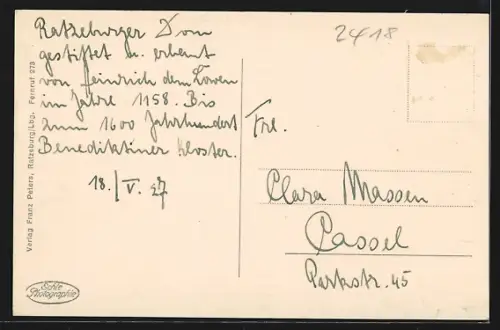 Ratzeburger Dom
gestiftet u. erbaut
von Heinrich dem Löwen
im Jahre 1158. Bis
zum 1600 Jahrhundert
Benediktiner Kloster.
18./V. 27
2418
Frl.
Clara Massen
Cassel
Parkstr. 45
Verlag Franz Peters, Ratzeburg/Lbg. Fernruf 273
Echte
Photographie